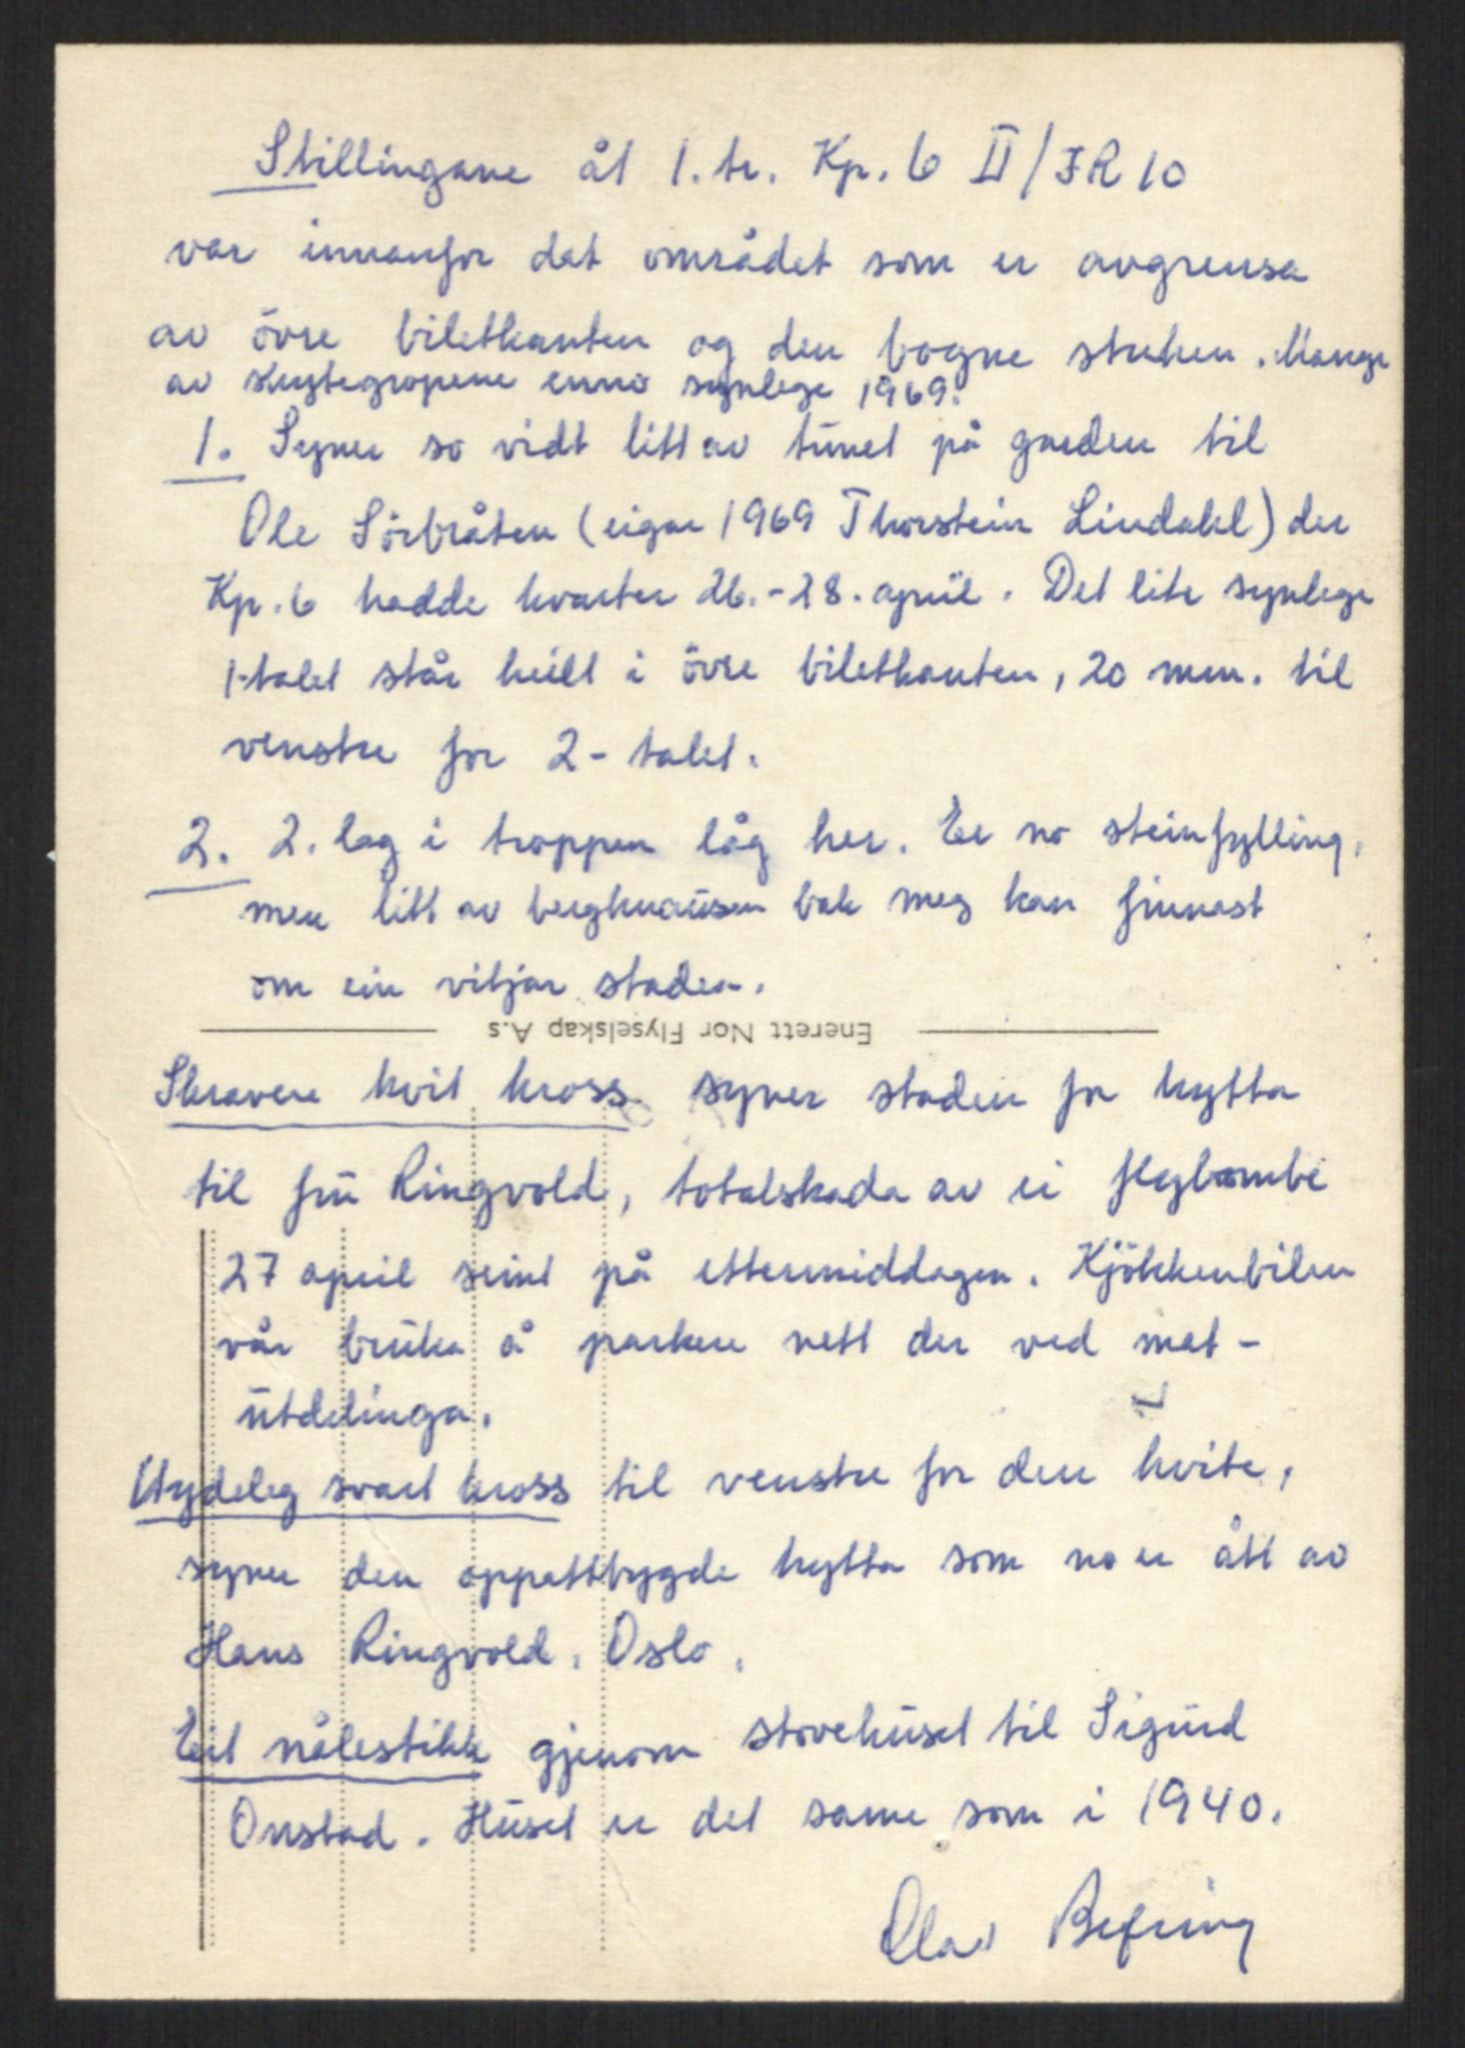 Stillingane åt 1. tr. Kp. 6 II/IR 10
var innanfor det området som er avgrensa
av övre biletkanten og den bogne streken. Mange
av skytegropene enno synlege 1969.
1. Syner so vidt litt av tunet på garden til
Ole Sörbråten (eigar 1969 Thorstein Lindahl) der
Kp. 6 hadde kvarter 26.-28. april. Det lite synlege
1-talet står heilt i övre biletkanten, 20 mm. til
venstre for 2-talet.
2. 2. lag i troppen låg her. Er no steinfylling,
men litt av bergknausen bak meg kan finnast
om ein vitjar staden.
Enerett Nor Flyselskap A.s
Skravere kvit kross syner staden for hytta
til fru Ringvold, totalskada av ei flybombe
27 april seint på ettermiddagen. Kjökkenbilen
vår bruka å parkere nett der ved mat-
utdelinga.
Utydeleg svart kross til venstre for den kvite,
syner den oppattbygde hytta som no er ått av
Hans Ringvold, Oslo.
Eit nålestikk gjenom stovehuset til Sigurd
Onstad. Huset er det same som i 1940.
Olav Befring